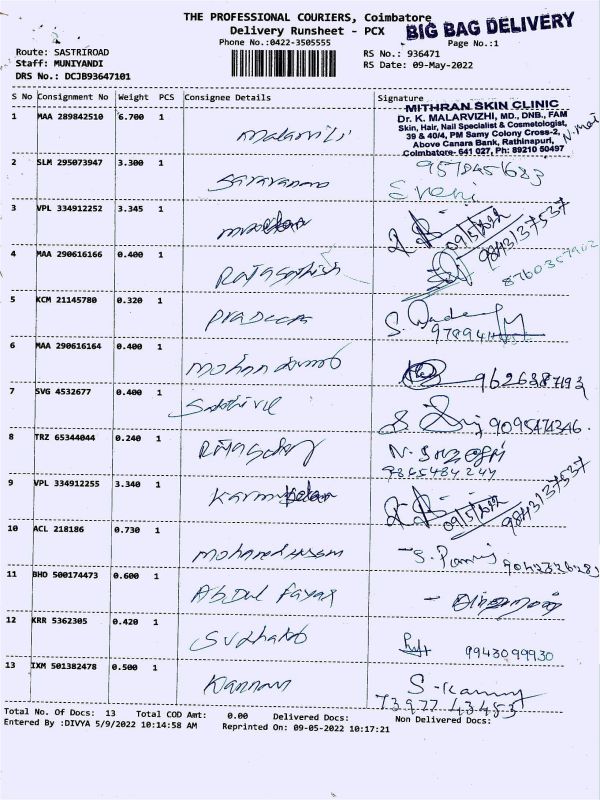 THE PROFESSIONAL COURIERS, Coimbatore
BIG BAG DELIVERY
Delivery Runsheet - PCX
Phone No.:0422-3505555
Page No.:1
Route: SASTRIROAD
RS No.: 936471
Staff: MUNIYANDI
RS Date: 09-May-2022
DRS No.: DCJB93647101
S No Consignment No Weight PCS Consignee Details Signature
MITHRAN SKIN CLINIC
Dr. K. MALARVIZHI, MD., DNB., FAM
Skin, Hair, Nail Specialist & Cosmetologist,
39 & 40/4, PM Samy Colony Cross-2,
Above Canara Bank, Rathinapuri,
Coimbatore- 641 027, Ph: 89210 50497
1 MAA 289842510 6.700 1 malarvili
2 SLM 295073947 3.300 1 Saravanan
3 VPL 334912252 3.345 1 09/5/2022 9843137537
4 MAA 290616166 0.400 1 Rajasathish 8760357902
5 KCM 21145780 0.320 1 Pradeep
6 MAA 290616164 0.400 1 9626387193
7 SVG 4532677 0.400 1 Sakthivel 9095474346.
8 TRZ 65344044 0.240 1 9865484244
9 VPL 334912255 3.340 1 09/5/2022 9843137537
10 ACL 218186 0.730 1
11 BHD 500174473 0.600 1 Abdul Fayas
12 KRR 5362305 0.420 1 Sudhakar 9943099930
13 IXM 501382478 0.500 1 Kannan
73977 43483
Total No. Of Docs: 13 Total COD Amt: 0.00 Delivered Docs: Non Delivered Docs:
Entered By :DIVYA 5/9/2022 10:14:58 AM Reprinted On: 09-05-2022 10:17:21